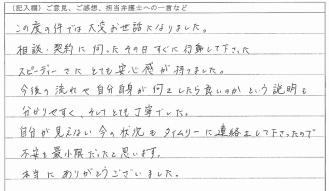 (記入欄)ご意見、ご感想、担当弁護士への一言など
この度の件では大変お世話になりました。
相談・契約に伺ったその日すぐに行動して下さった
スピーディーさにとても安心感が持てました。
今後の流れや自分自身が何をしたら良いのかという説明も
分かりやすく、そしてとても丁寧でした。
自分が見えない今の状況もタイムリーに連絡をして下さったので
不安も最小限だったと思います。
本当にありがとうございました。